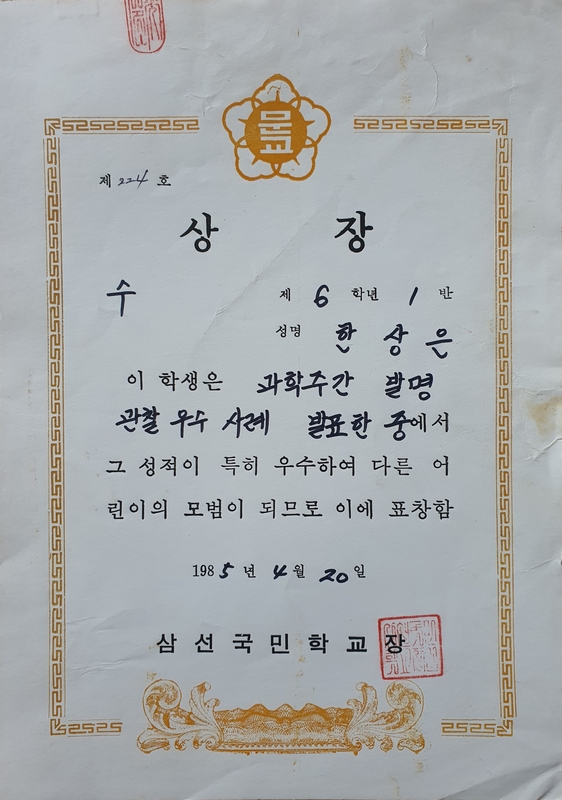 문교
제 224 호
상 장
수
제 6 학년 1 반
성명 한 상 은
이 학생은 과학주간 발명
관찰 우수 사례 발표한 중에서
그 성적이 특히 우수하여 다른 어
린이의 모범이 되므로 이에 표창함
1985 년 4 월 20 일
삼선국민학교장